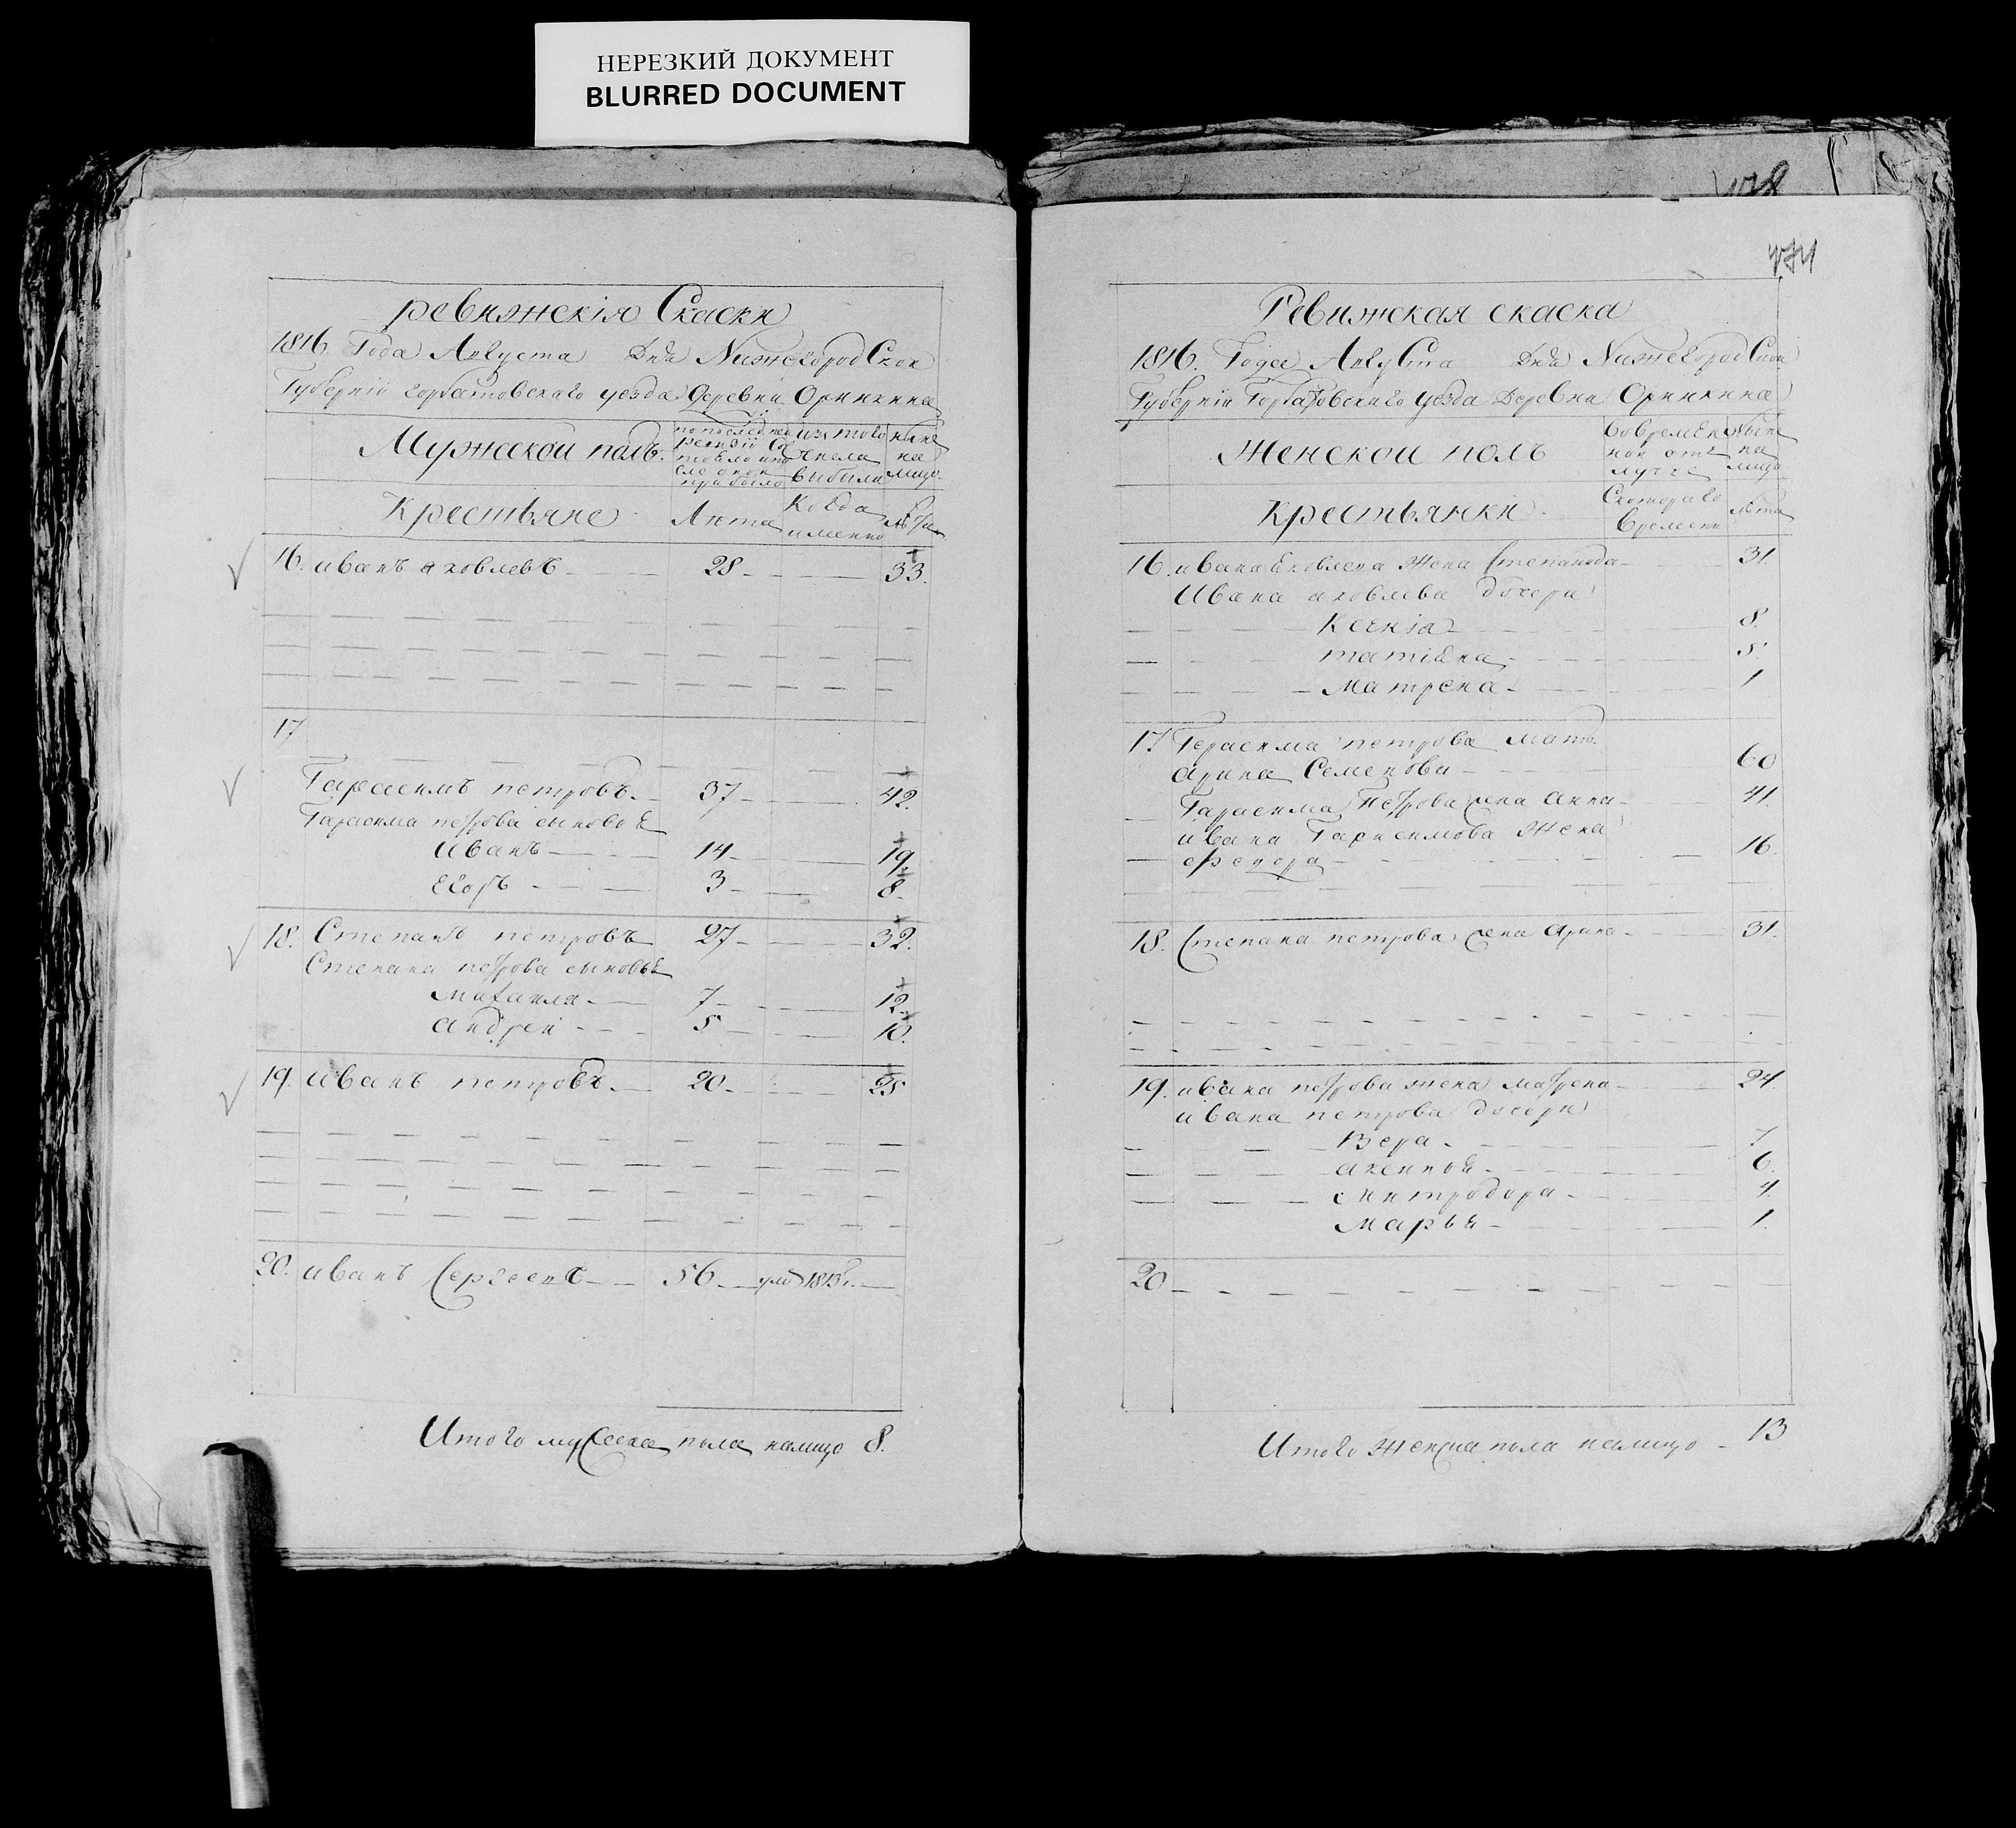 НЕРЕЗКИЙ ДОКУМЕНТ
BLURRED DOCUMENT
ревижскія Скаски
1816. Года Августа Дня Нижегородской
Губерніи горбатовскаго уезда Деревни Оринкина
Мужескои полъ.
по последней ревизіи состояло и после оной прибыло
изъ того числа выбыло
ныне на лицо.
Крестьяне
Лѣта
Когда именно
Лѣта
16. иванъ яковлевъ 28 33.
17
Гарасимъ петровъ. 37 42.
Гарасима петрова сыновья
иванъ 14 19.
Егоръ 3 8.
18. Степанъ петровъ 27 32.
Степана петрова сыновья
михаила 7 12.
андреи 5 10.
19. иванъ петровъ. 20 25
20. иванъ Сергеевъ 56 ум. 1813 г.
Итого мужеска пола налицо 8.
478
474
Ревижская скаска
1816. Года Августа Дня Нижегородской
Губерніи Горбатовскаго Уезда Деревни Оринкина
Женскои полъ
Во временной отлучке
Ныне на лицо
Крестьянки.
Скотораго времени
лѣта
16. ивана яковлева жена Степанида 31.
Ивана яковлева дочери
Ксениia 8.
татіяна 5.
Матрена 1
17. Герасима петрова мать
арина Семенова 60
Гарасима Петрова жена анна 41.
ивана Гарисимова жена
федора 16.
18. Степана петрова жена арина 31.
19. ивана петрова жена матрена 24
ивана петрова дочери
Вера 7
аксинья 6.
митродора 4.
марья 1.
20
Итого женска пола налицо 13